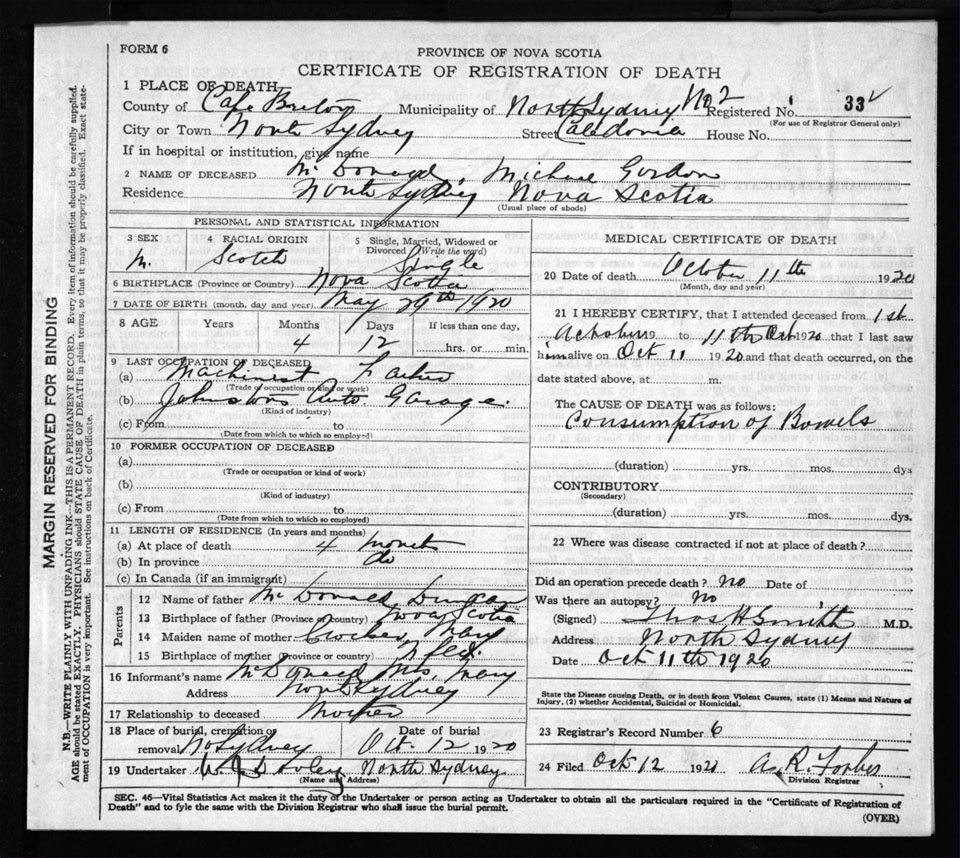 FORM 6
PROVINCE OF NOVA SCOTIA
CERTIFICATE OF REGISTRATION OF DEATH
1 PLACE OF DEATH
County of Cape Breton Municipality of North Sydney No 2 Registered No. 33
(For use of Registrar General only)
City or Town North Sydney Street Caledonia House No.
If in hospital or institution, give name
2 NAME OF DECEASED McDonald, Michael Gordon
Residence North Sydney Nova Scotia
(Usual place of abode)
PERSONAL AND STATISTICAL INFORMATION
3 SEX 4 RACIAL ORIGIN 5 Single, Married, Widowed or
Divorced (Write the word)
M. Scotch Single
6 BIRTHPLACE (Province or Country) Nova Scotia
7 DATE OF BIRTH (month, day and year) May 29th 1920
8 AGE Years Months Days If less than one day,
4 12 hrs. or min.
9 LAST OCCUPATION OF DECEASED
(a) Machinist Father
(Trade of occupation or kind of work)
(b) Johnstons Auto. Garage.
(Kind of industry)
(c) From to
(Date from which to which so employed)
10 FORMER OCCUPATION OF DECEASED
(a)
(Trade or occupation or kind of work)
(b)
(Kind of industry)
(c) From to
(Date from which to which so employed)
11 LENGTH OF RESIDENCE (In years and months)
(a) At place of death 4 months
(b) In province do
(c) In Canada (if an immigrant)
Parents
12 Name of father McDonald Duncan
13 Birthplace of father (Province or country) Nova Scotia
14 Maiden name of mother Crocker Mary
15 Birthplace of mother (Province or country) Nfld.
16 Informant's name McDonald Mrs. Mary
Address North Sydney
17 Relationship to deceased Mother
18 Place of burial, cremation or removal No Sydney Date of burial Oct. 12 1920
19 Undertaker North Sydney
(Name and Address)
MEDICAL CERTIFICATE OF DEATH
20 Date of death October 11th 1920
(Month, day and year)
21 I HEREBY CERTIFY, that I attended deceased from 1st
October 19 to 11th Oct 1920 that I last saw
him alive on Oct 11 1920 and that death occurred, on the
date stated above, at m.
The CAUSE OF DEATH was as follows:
Consumption of Bowels
(duration) yrs. mos. dys
CONTRIBUTORY
(Secondary)
(duration) yrs. mos. dys.
22 Where was disease contracted if not at place of death?
Did an operation precede death? No Date of
Was there an autopsy? No
(Signed) Thos H Smith M.D.
Address North Sydney
Date Oct 11th 1920
State the Disease causing Death, or in death from Violent Causes, state (1) Means and Nature of
Injury, (2) whether Accidental, Suicidal or Homicidal.
23 Registrar's Record Number 6
24 Filed Oct 12 192 A. R. Forbes
Division Registrar
SEC. 46—Vital Statistics Act makes it the duty of the Undertaker or person acting as Undertaker to obtain all the particulars required in the "Certificate of Registration of
Death" and to fyle the same with the Division Registrar who shall issue the burial permit.
(OVER)
MARGIN RESERVED FOR BINDING
N.B.—WRITE PLAINLY WITH UNFADING INK—THIS IS A PERMANENT RECORD. Every item of information should be carefully supplied.
AGE should be stated EXACTLY. PHYSICIANS should STATE CAUSE OF DEATH in plain terms, so that it may be properly classified. Exact state-
ment of OCCUPATION is very important. See instructions on back of Certificate.